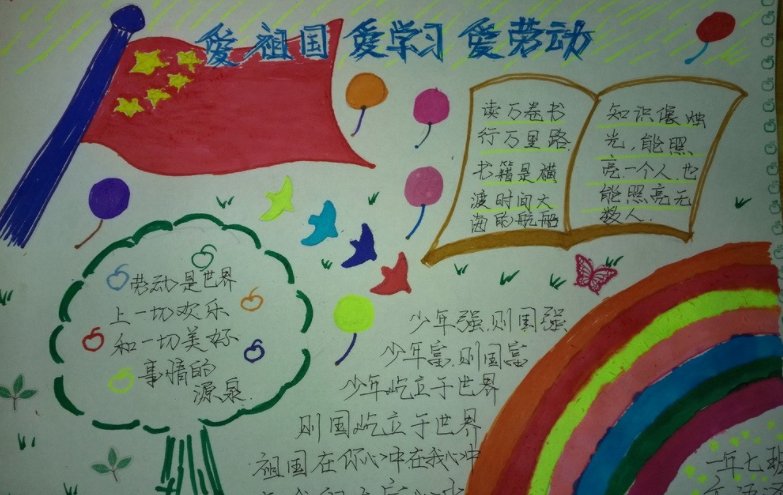 爱祖国 爱学习 爱劳动
读万卷书
行万里路
书籍是横
渡时间大
海的航船
知识像烛
光,能照
亮一个人,也
能照亮无
数人.
劳动是世界
上一切欢乐
和一切美好
事情的
源泉.
少年强,则国强
少年富,则国富
少年屹立于世界
则国屹立于世界
祖国在你心中在我心中
一年七班